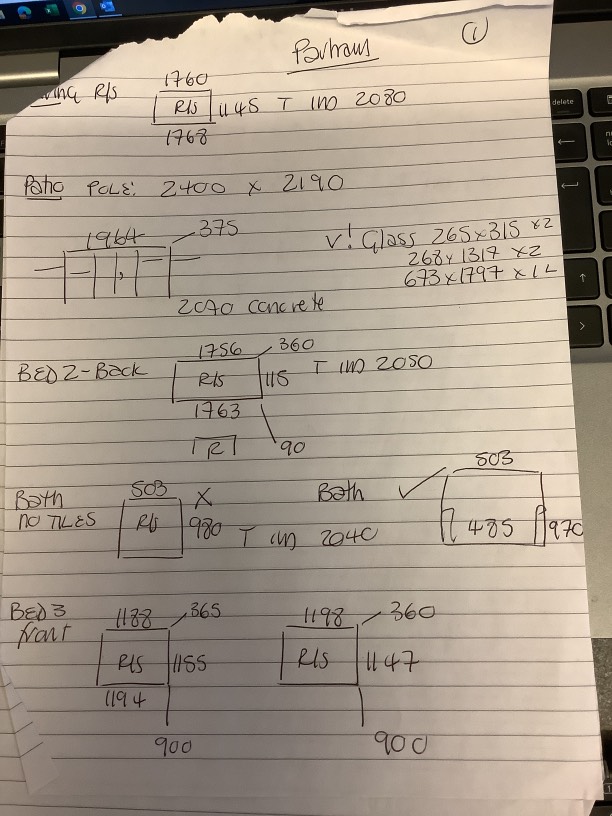 Parhams
1
ving R/s
1760
R/s 1145 T (W) 2080
1768
Patio POLE: 2400 x 2190
1964 375
V! Glass 265x315 x2
268x1317 x2
673x1797 x1 L
2070 concrete
BED 2-Back
1756 360
R/s 115 T (W) 2050
1763
R 90
Bath
NO TILES
503 X
R/s 980 T (W) 2040
Bath ✓
503
485 970
BED 3
front
1188 365
R/s 1155
1194
900
1198 360
R/s 1147
900
delete